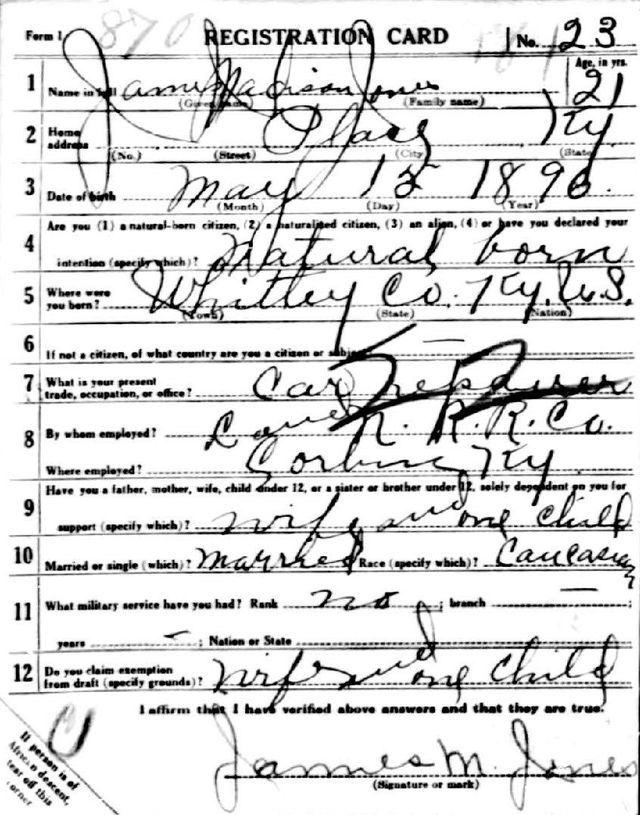 Form 1 870 REGISTRATION CARD No. 23
1 Name in full James Madison Jones Age, in yrs. 21
(Given name) (Family name)
2 Home address Place Ky.
(No.) (Street) (City) (State)
3 Date of birth May 15 1896
(Month) (Day) (Year)
4 Are you (1) a natural-born citizen, (2) a naturalized citizen, (3) an alien, (4) or have you declared your
intention (specify which)? Natural born
5 Where were you born? Whitley Co. Ky. U.S.
(Town) (State) (Nation)
6 If not a citizen, of what country are you a citizen or subject? —
7 What is your present trade, occupation, or office? Car Repairer
8 By whom employed? L and N. R. R. Co.
Where employed? Corbin Ky
9 Have you a father, mother, wife, child under 12, or a sister or brother under 12, solely dependent on you for
support (specify which)? wife and one child
10 Married or single (which)? married Race (specify which)? Caucasian
11 What military service have you had? Rank no ; branch — ;
years — ; Nation or State
12 Do you claim exemption from draft (specify grounds)? wife and one child
I affirm that I have verified above answers and that they are true.
Jammes M. Jones
(Signature or mark)
If person is of
African descent,
tear off this
corner